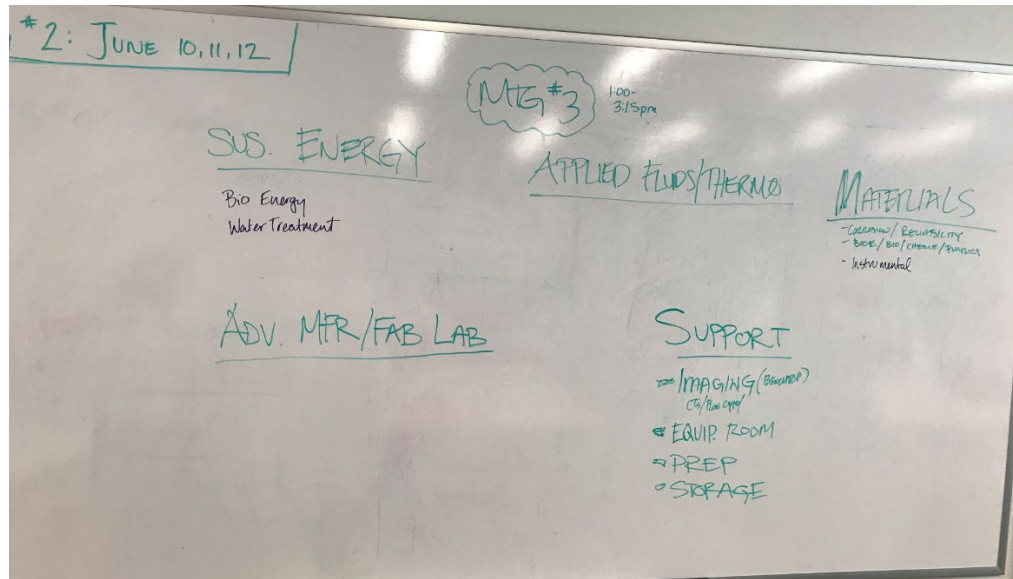 #2: JUNE 10,11,12
MTG #3
1:00-
3:15pm
SUS. ENERGY
Bio Energy
Water Treatment
APPLIED FLUIDS/THERMO
MATERIALS
- CORROSION/RELIABILITY
- BIOE/BIO/CHEME/PHYSICS
- Instrumental
ADV. MFR/FAB LAB
SUPPORT
IMAGING (BENCHTOP)
EQUIP. ROOM
PREP
STORAGE